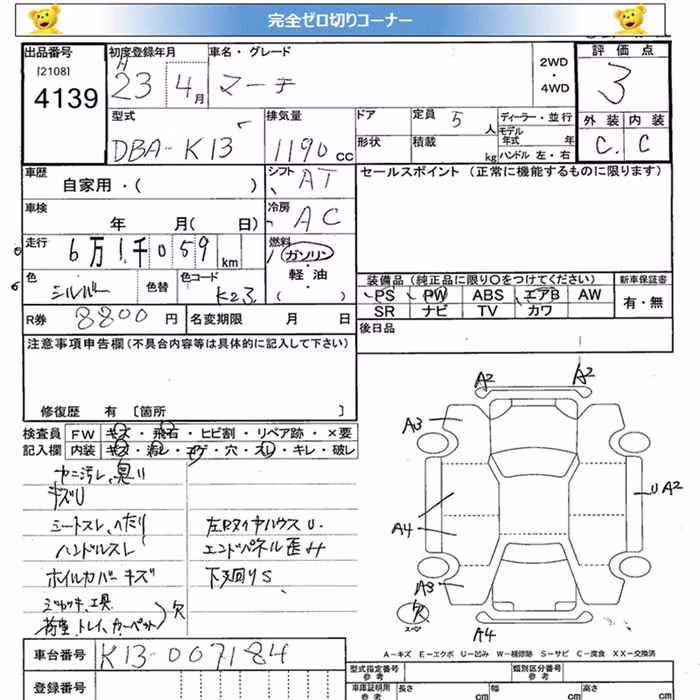 完全ゼロ切りコーナー
出品番号
[2108]
4139
初度登録年月
H
23 4月
車名・グレード
マーチ
2WD
・
4WD
評価点
3
外装 内装
C. C
型式
DBA-K13
排気量
1190 cc
ドア
形状
定員 5 人
積載 kg
ディーラー・並行
モデル年式 年
ハンドル 左・右
車歴
自家用・( )
シフト AT
セールスポイント (正常に機能するものに限ります)
車検
年 月( 日)
冷房 AC
走行
6万1千059 km
燃料
ガソリン
・
軽油
( )
色
シルバー
色替
色コード
K23
装備品 (純正品に限り○をつけてください)
新車保証書
PS PW ABS エアB AW
SR ナビ TV カワ
有・無
R券 8800 円
名変期限 月 日
後日品
注意事項申告欄 (不具合内容等は具体的に記入して下さい)
修復歴 有 [箇所 ]
検査員
記入欄
FW キズ・飛石・ヒビ割・リペア跡・×要
内装 キズ・汚レ・コゲ・穴・スレ・キレ・破レ
ヤニ汚レ、臭い
キズU
シートスレ、ヘタリ
ハンドルスレ
ホイルカバーキズ
ジャッキ、工具
荷室、トレイ、カーペット) 欠
左Rタイヤハウス U.
エンドパネル歪み
下廻りS、
A2 A2
A3
U A2
A4
A3
欠
A4
A-キズ E-エクボ U-凹み W-補修跡 S-サビ C-腐食 XX-交換済
車台番号 K13-007184
登録番号
型式指定番号
参考
類別区分番号
参考
車庫証明用
参考
長さ cm
幅 cm
高さ cm